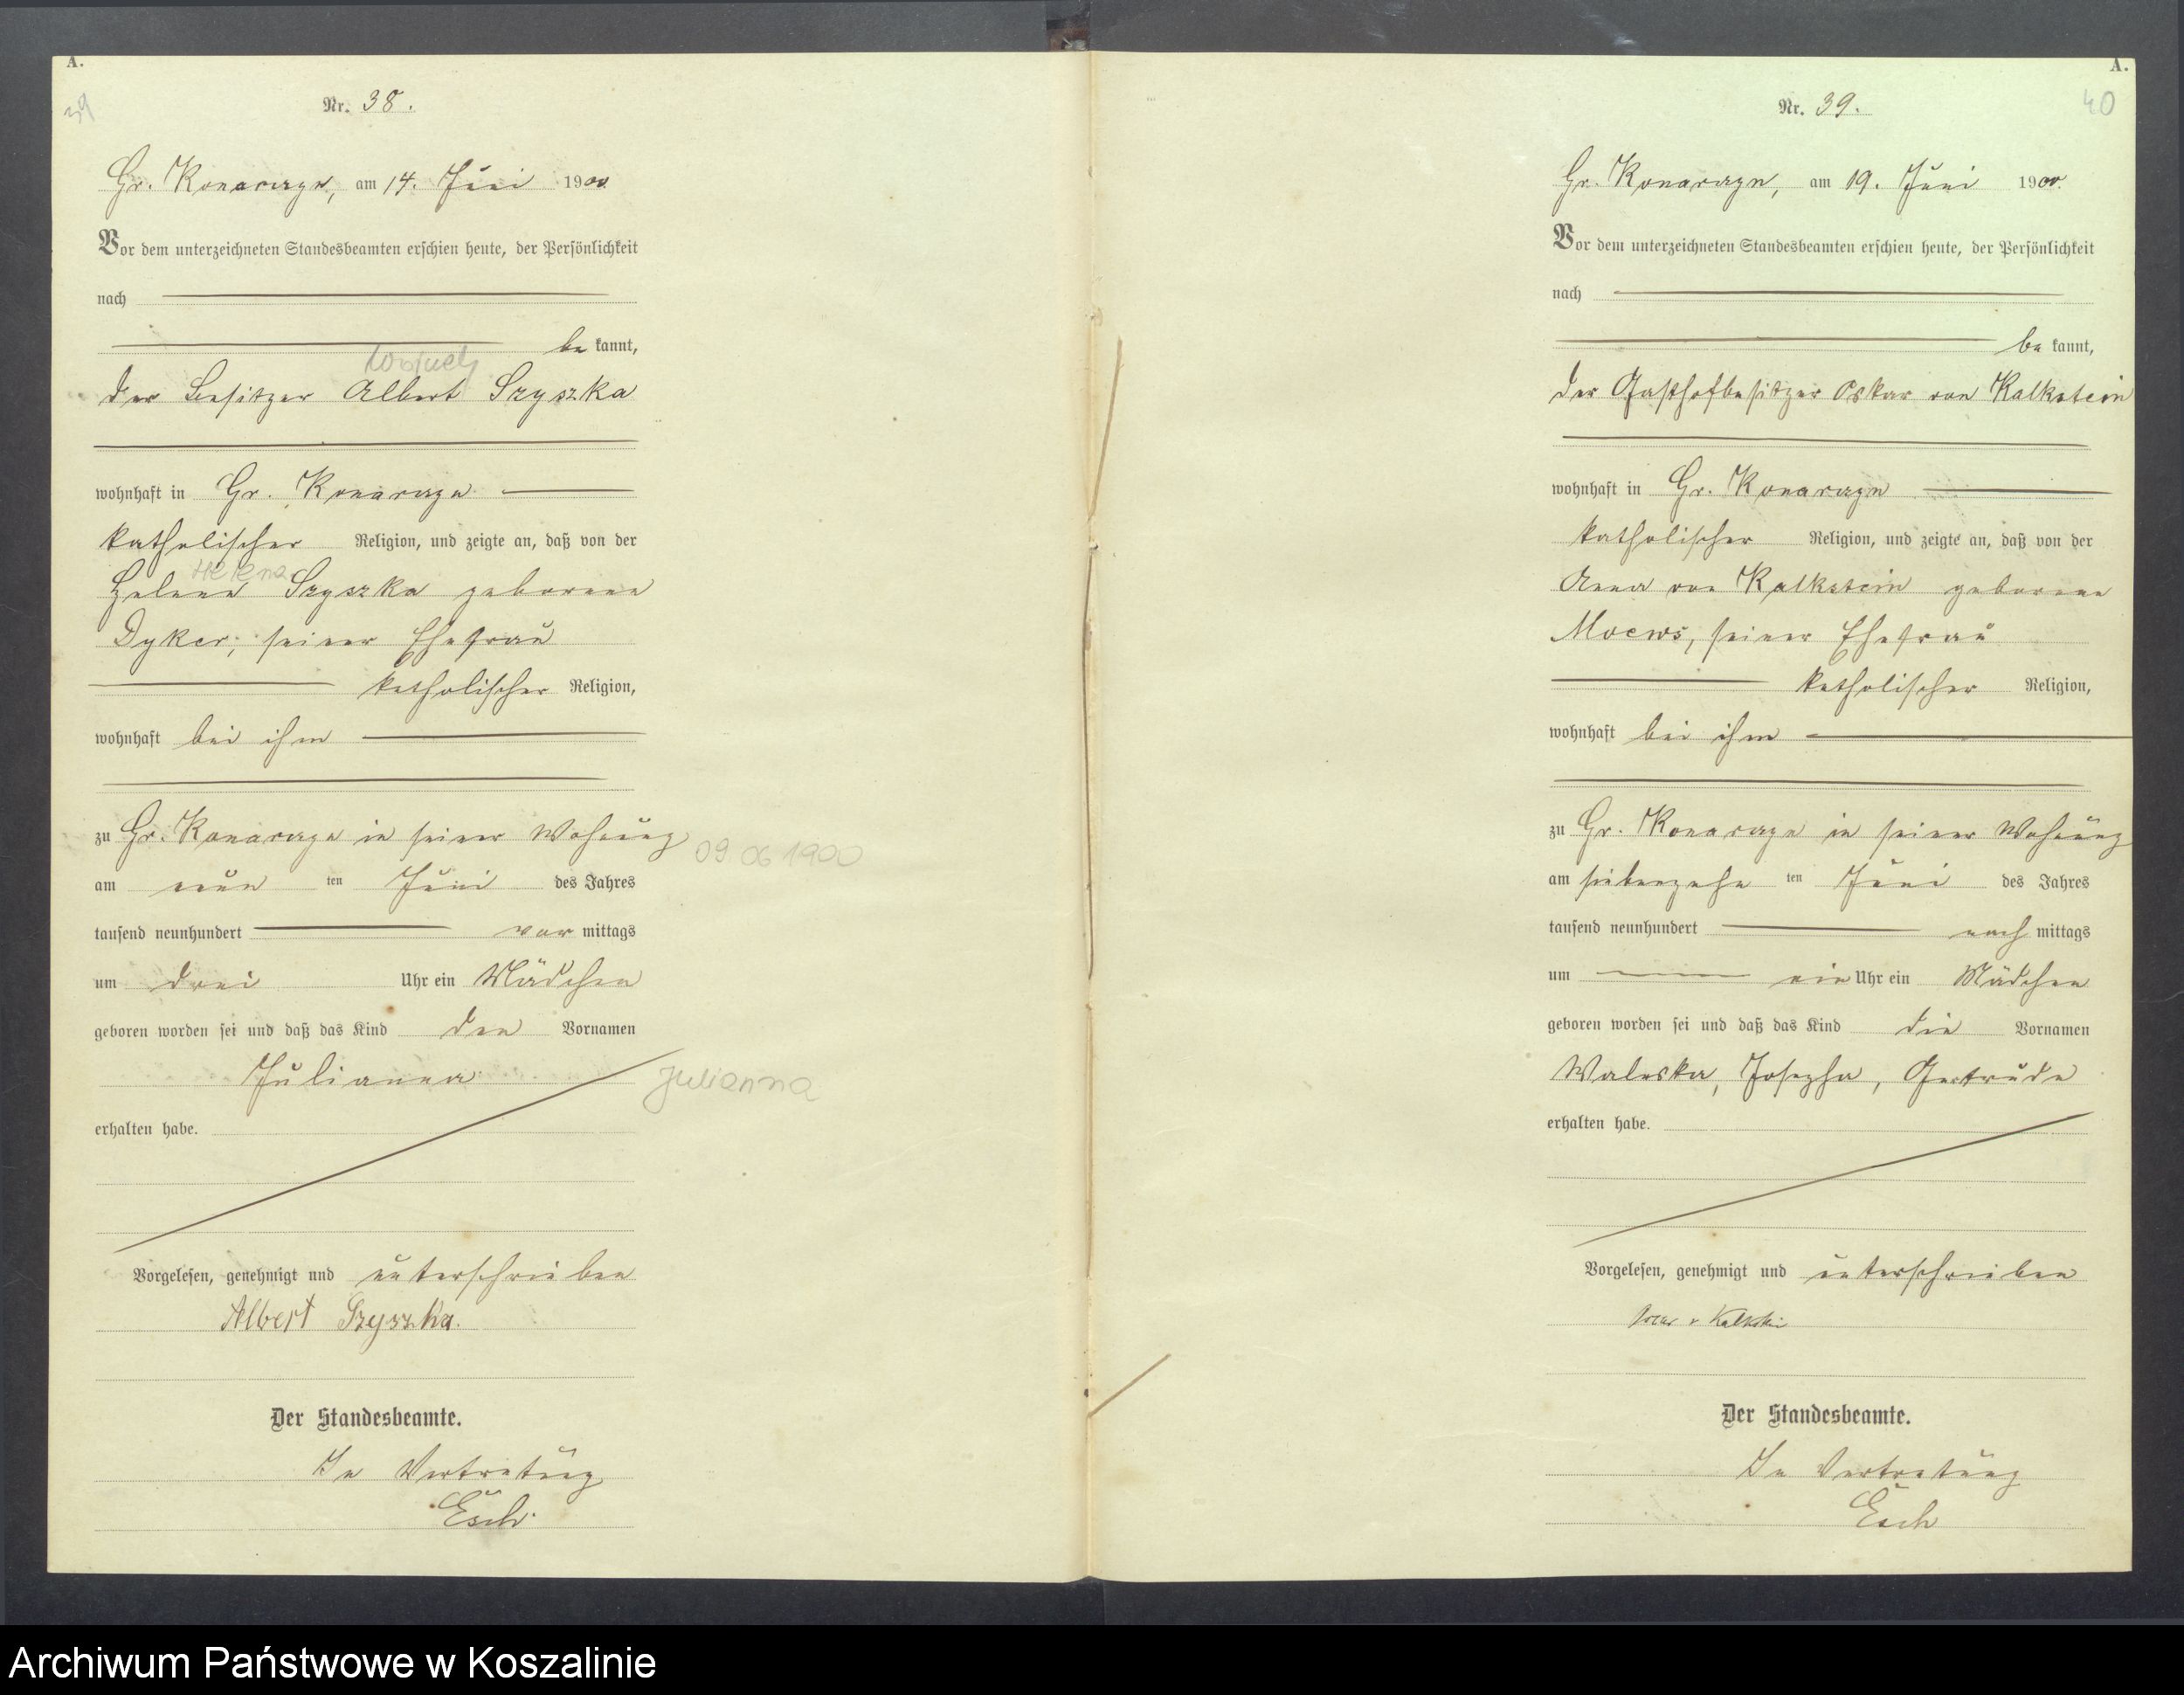 A.
39
Nr. 38.
Gr. Konarczyn, am 14. Juni 1900
Vor dem unterzeichneten Standesbeamten erschien heute, der Persönlichkeit
nach
be kannt,
der Besitzer Albert Szyszka
wohnhaft in Gr. Konarczyn
katholischer Religion, und zeigte an, daß von der
Helena
Helene Szyszka geborene
Dyker, seiner Ehefrau
katholischer Religion,
wohnhaft bei ihm
zu Gr. Konarczyn in seiner Wohnung
09 06 1900
am neun ten Juni des Jahres
tausend neunhundert vor mittags
um drei Uhr ein Mädchen
geboren worden sei und daß das Kind den Vornamen
Julianna
Julianna
erhalten habe.
Vorgelesen, genehmigt und unterschrieben
Albert Szyszka.
Der Standesbeamte.
In Vertretung
Esch.
A.
40
Nr. 39.
Gr. Konarczyn, am 19. Juni 1900.
Vor dem unterzeichneten Standesbeamten erschien heute, der Persönlichkeit
nach
be kannt,
der Gasthofbesitzer Oskar von Kalkstein
wohnhaft in Gr. Konarczyn
katholischer Religion, und zeigte an, daß von der
Anna von Kalkstein geborene
Moews, seiner Ehefrau
katholischer Religion,
wohnhaft bei ihm
zu Gr. Konarczyn in seiner Wohnung
am siebenzehn ten Juni des Jahres
tausend neunhundert nach mittags
um ein Uhr ein Mädchen
geboren worden sei und daß das Kind die Vornamen
Waleska, Josepha, Gertrude
erhalten habe.
Vorgelesen, genehmigt und unterschrieben
Oscar v Kalkstein
Der Standesbeamte.
In Vertretung
Esch
Archiwum Państwowe w Koszalinie